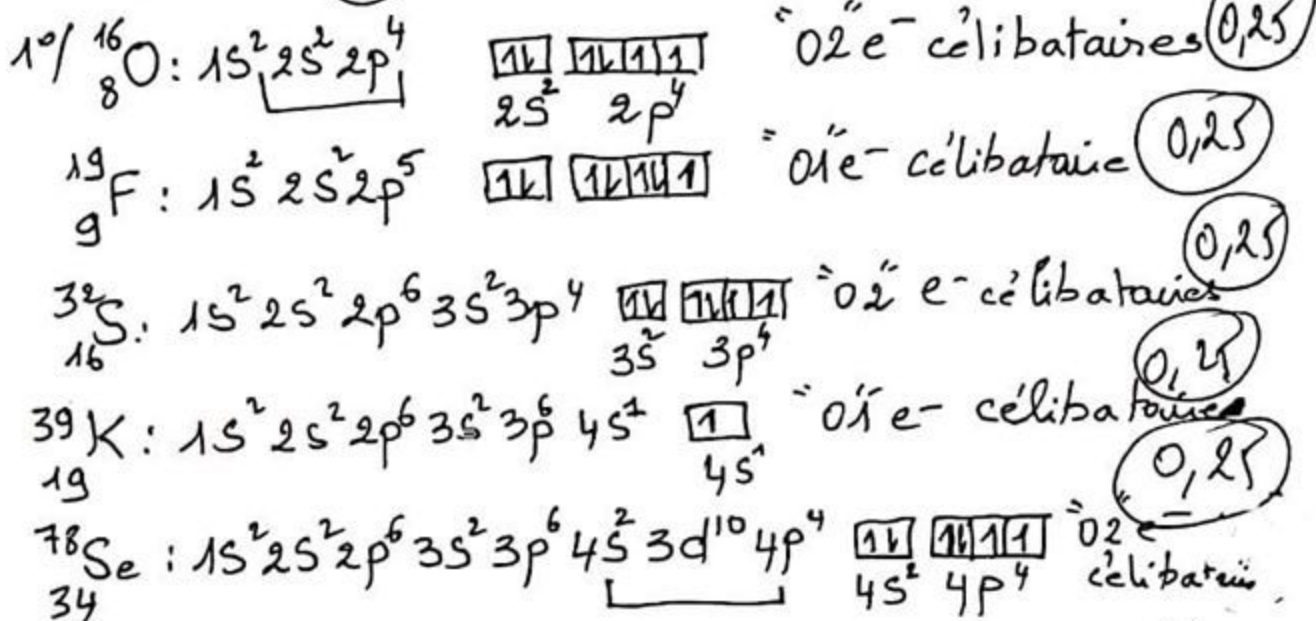 1°/ ¹⁶₈O: 1S² 2S² 2p⁴ 1L 1L 1 1 "02" e⁻ célibataires 0,25
2S² 2p⁴
¹⁹₉F : 1S² 2S² 2p⁵ 1L 1L 1L 1 "01" e⁻ célibataire 0,25
0,25
³²₁₆S: 1S² 2S² 2p⁶ 3S² 3p⁴ 1L 1L 1 1 "02" e⁻ célibataires
3S² 3p⁴
0,25
³⁹₁₉K : 1S² 2S² 2p⁶ 3S² 3p⁶ 4S¹ 1 "01" e⁻ célibataire
4S¹
0,25
⁷⁸₃₄Se : 1S² 2S² 2p⁶ 3S² 3p⁶ 4S² 3d¹⁰ 4p⁴ 1L 1L 1 1 "02 e⁻
4S² 4p⁴ célibataires